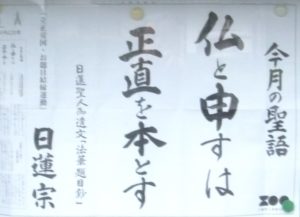 今月の聖語
仏と申すは
正直を本とす
日蓮聖人御遺文「法華題目鈔」
「立正安国・お題目結縁運動」
日蓮宗